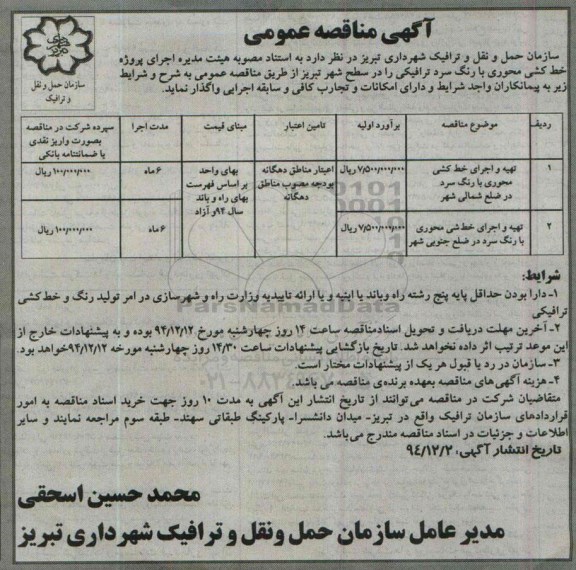 آگهی مناقصه عمومی
سازمان حمل و نقل و ترافیک
سازمان حمل و نقل و ترافیک شهرداری تبریز در نظر دارد به استناد مصوبه هیئت مدیره اجرای پروژه
خط کشی محوری با رنگ سرد ترافیکی را در سطح شهر تبریز از طریق مناقصه عمومی به شرح و شرایط
زیر به پیمانکاران واجد شرایط و دارای امکانات و تجارب کافی و سابقه اجرایی واگذار نماید.
ردیف موضوع مناقصه برآورد اولیه تامین اعتبار مبنای قیمت مدت اجرا سپرده شرکت در مناقصه بصورت واریز نقدی یا ضمانتنامه بانکی
۱ تهیه و اجرای خط کشی محوری با رنگ سرد در ضلع شمالی شهر ۷/۵۰۰/۰۰۰/۰۰۰ ریال اعتبار مناطق دهگانه بودجه مصوب مناطق دهگانه بهای واحد بر اساس فهرست بهای راه و باند سال ۹۴ و آزاد ۶ ماه ۱۰۰/۰۰۰/۰۰۰ ریال
۲ تهیه و اجرای خط شی محوری با رنگ سرد در ضلع جنوبی شهر ۷/۵۰۰/۰۰۰/۰۰۰ ریال ۶ ماه ۱۰۰/۰۰۰/۰۰۰ ریال
شرایط:
۱- دارا بودن حداقل پایه پنج رشته راه وباند یا ابنیه و یا ارائه تاییدیه وزارت راه و شهرسازی در امر تولید رنگ و خط کشی
ترافیکی
۲- آخرین مهلت دریافت و تحویل اسنادمناقصه ساعت ۱۴ روز چهارشنبه مورخ ۹۴/۱۲/۱۲ بوده و به پیشنهادات خارج از
این موعد ترتیب اثر داده نخواهد شد. تاریخ بازگشایی پیشنهادات ساعت ۱۴/۳۰ روز چهارشنبه مورخه ۹۴/۱۲/۱۲خواهد بود.
۳- سازمان در رد یا قبول هر یک از پیشنهادات مختار است.
۴- هزینه آگهی های مناقصه بعهده برنده‌ی مناقصه می باشد.
متقاضیان شرکت در مناقصه می‌توانند از تاریخ انتشار این آگهی به مدت ۱۰ روز جهت خرید اسناد مناقصه به امور
قراردادهای سازمان ترافیک واقع در تبریز- میدان دانشسرا- پارکینگ طبقاتی سهند- طبقه سوم مراجعه نمایند و سایر
اطلاعات و جزئیات در اسناد مناقصه مندرج می‌باشد.
تاریخ انتشار آگهی، ۹۴/۱۲/۲
محمد حسین اسحقی
مدیر عامل سازمان حمل ونقل و ترافیک شهرداری تبریز
ParsNamadData